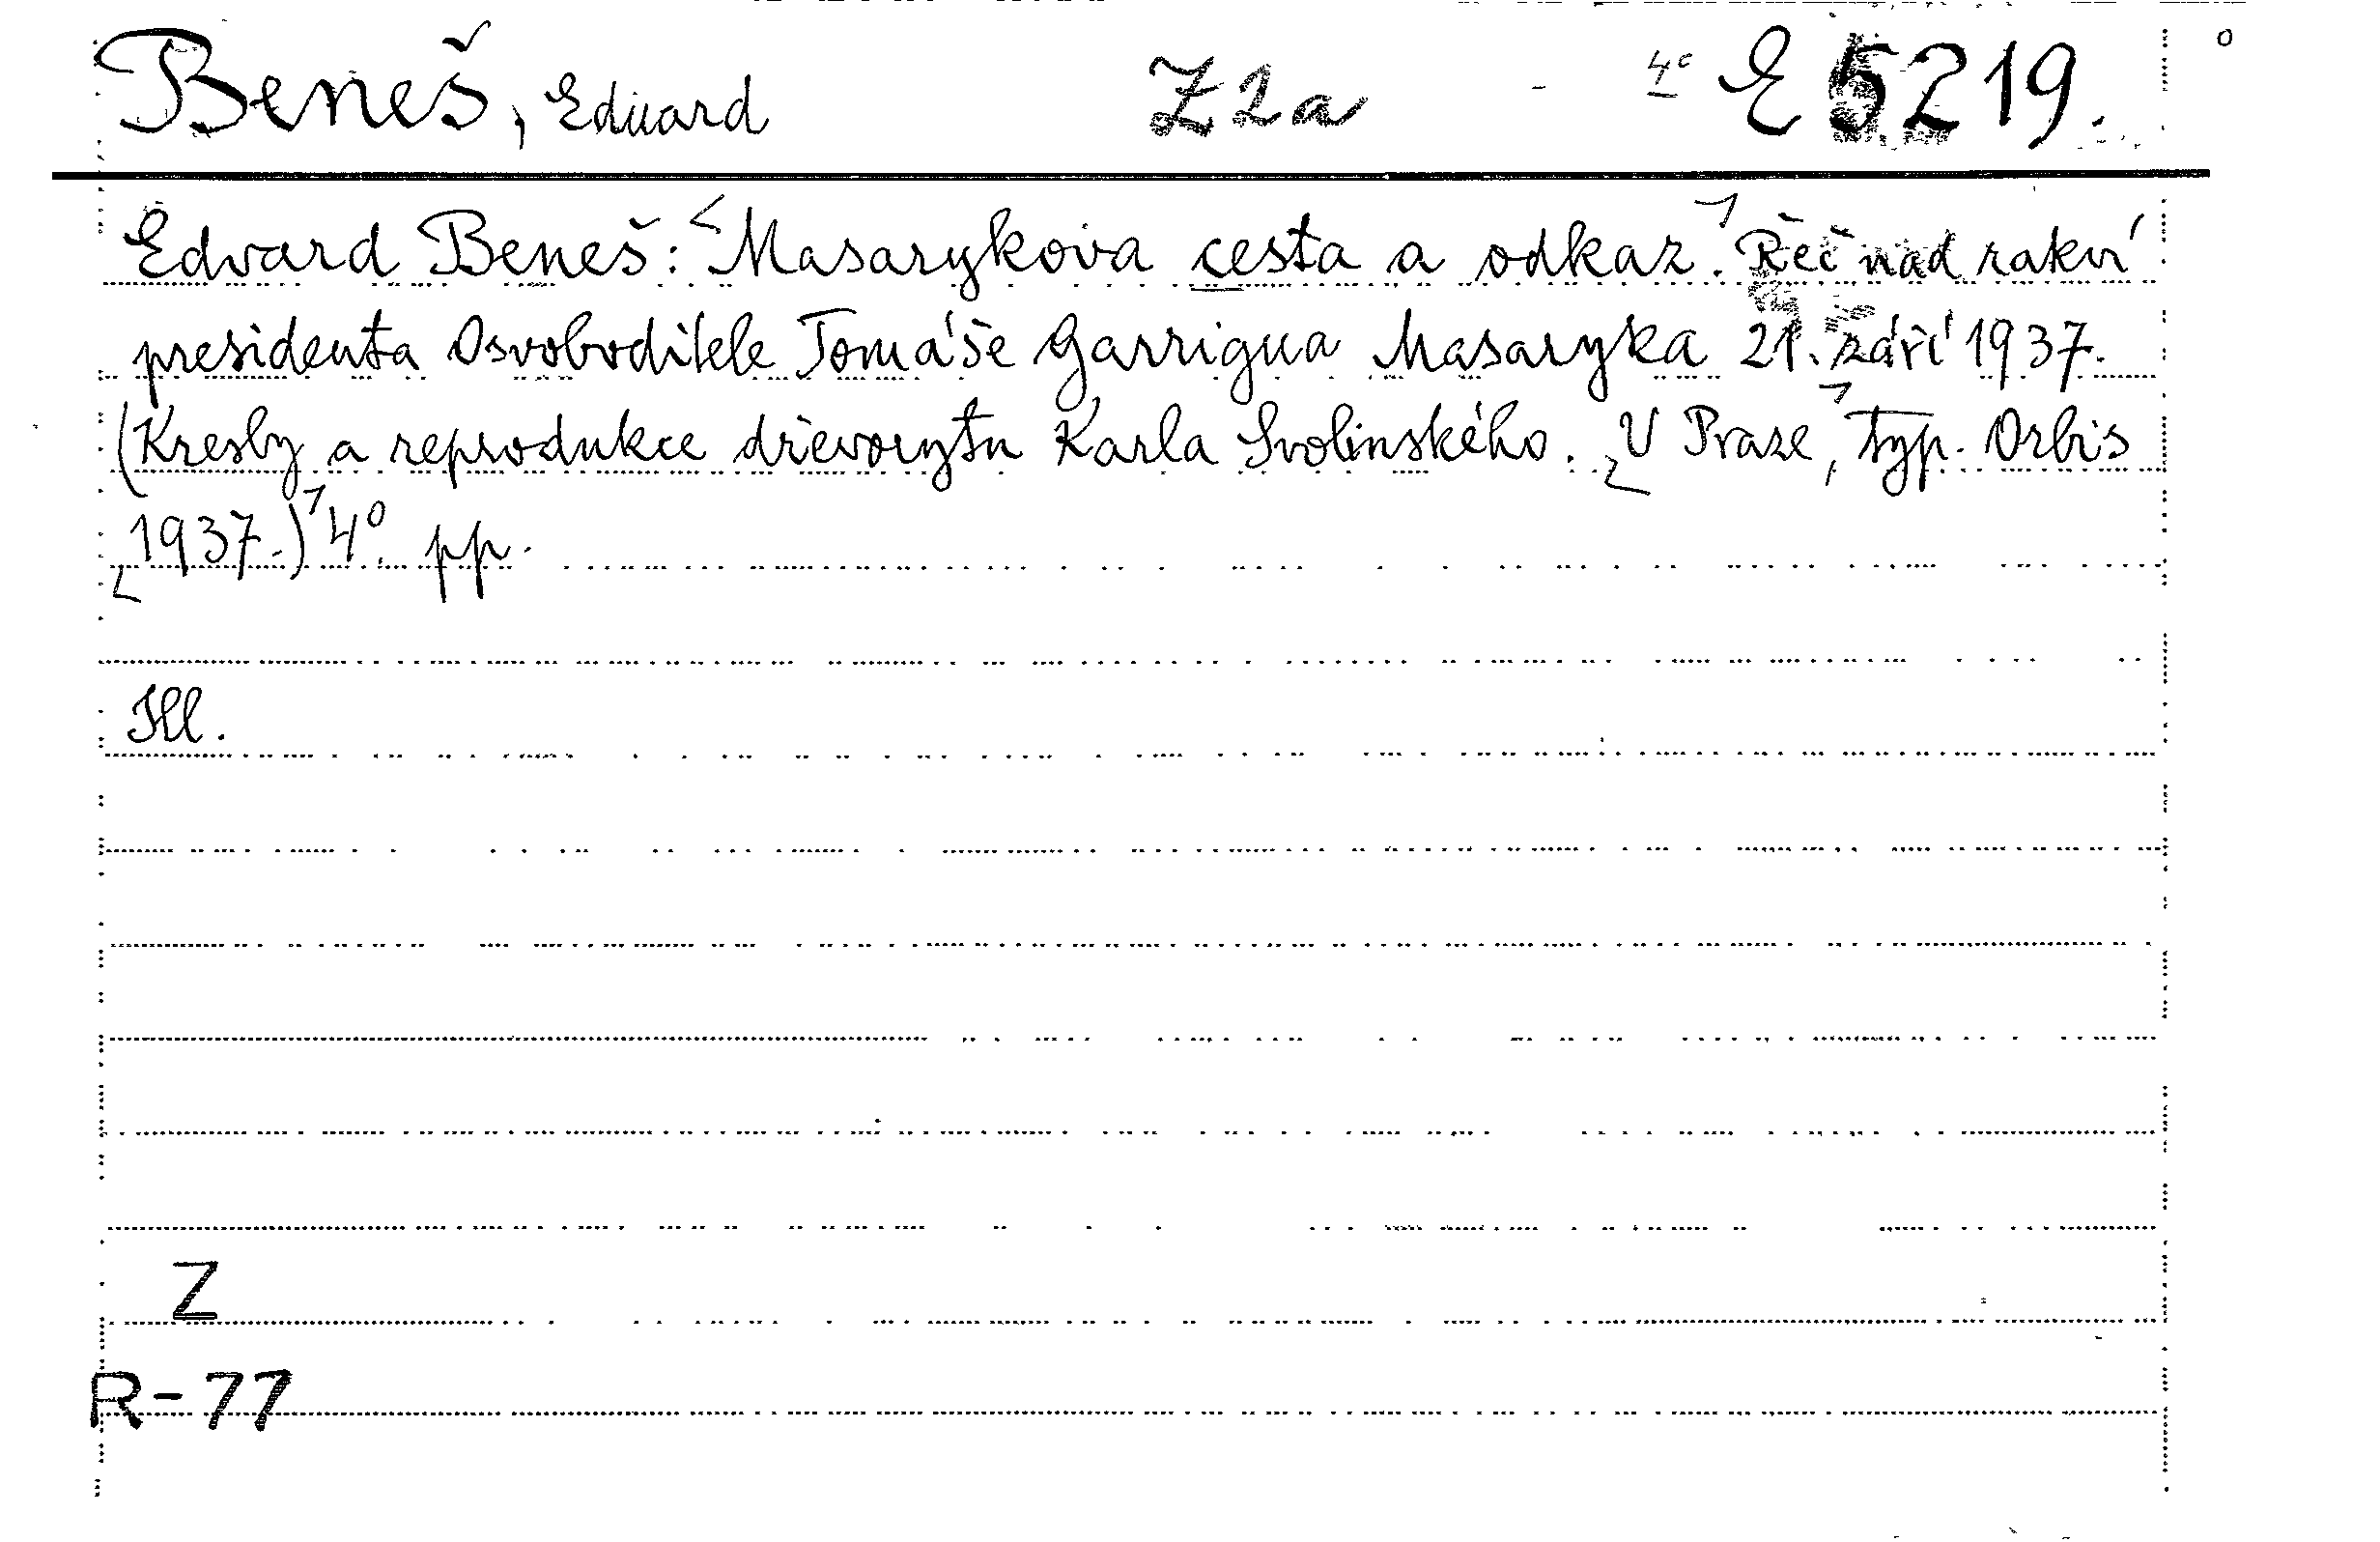 Beneš, Eduard Z2a - 4° E 5219.
Edvard Beneš: Masarykova cesta a odkaz. Řeč nad rakví
presidenta Osvoboditele Tomáše Garrigua Masaryka 21. září 1937.
(Kresby a reprodukce dřevorytu Karla Svolinského. V Praze, Typ. Orbis
1937.) 4°. pp.
Ill.
Z
R-77